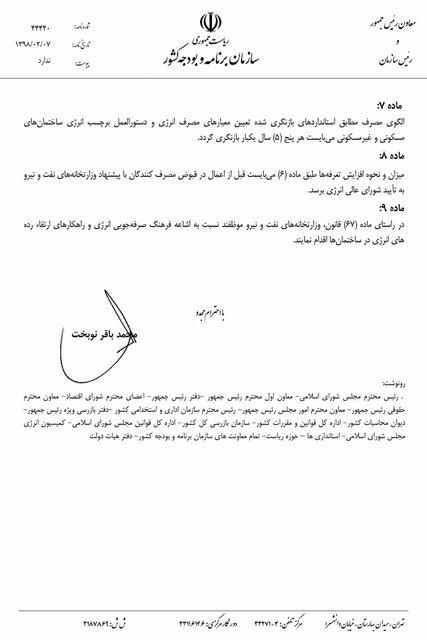 معاون رئیس جمهور
و
رئیس سازمان
ریاست جمهوری
سازمان برنامه و بودجه کشور
شماره نامه: ۴۴۴۴۰
تاریخ نامه: ۱۳۹۸/۰۲/۰۷
پیوست: ندارد
ماده ۷:
الگوی مصرف مطابق استانداردهای بازنگری شده تعیین معیارهای مصرف انرژی و دستورالعمل برچسب انرژی ساختمان‌های
مسکونی و غیرمسکونی می‌بایست هر پنج (۵) سال یکبار بازنگری گردد.
ماده ۸:
میزان و نحوه افزایش تعرفه‌ها طبق ماده (۶) می‌بایست قبل از اعمال در قبوض مصرف کنندگان با پیشنهاد وزارتخانه‌های نفت و نیرو
به تأیید شورای عالی انرژی برسد.
ماده ۹:
در راستای ماده (۶۷) قانون، وزارتخانه‌های نفت و نیرو موظفند نسبت به اشاعه فرهنگ صرفه‌جویی انرژی و راهکارهای ارتقاء رده
های انرژی در ساختمان‌ها اقدام نمایند.
با احترام مجدد
محمد باقر نوبخت
رونوشت:
. رئیس محترم مجلس شورای اسلامی- معاون اول محترم رئیس جمهور -دفتر رئیس جمهور- اعضای محترم شورای اقتصاد- معاون محترم
حقوقی رئیس جمهور- معاون محترم امور مجلس رئیس جمهور- رئیس محترم سازمان اداری و استخدامی کشور- دفتر بازرسی ویژه رئیس جمهور-
دیوان محاسبات کشور- اداره کل قوانین و مقررات کشور- سازمان بازرسی کل کشور- اداره کل قوانین مجلس شورای اسلامی- کمیسیون انرژی
مجلس شورای اسلامی- استانداری ها – حوزه ریاست- تمام معاونت های سازمان برنامه و بودجه کشور- دفتر هیات دولت
تهران- میدان بهارستان- خیابان دانشسرا مرکز تلفن: ۳۳۲۷۱-۴ دورنگار مرکزی: ۳۳۱۱۶۱۴۶ ش ش: ۳۱۸۷۸۶۹